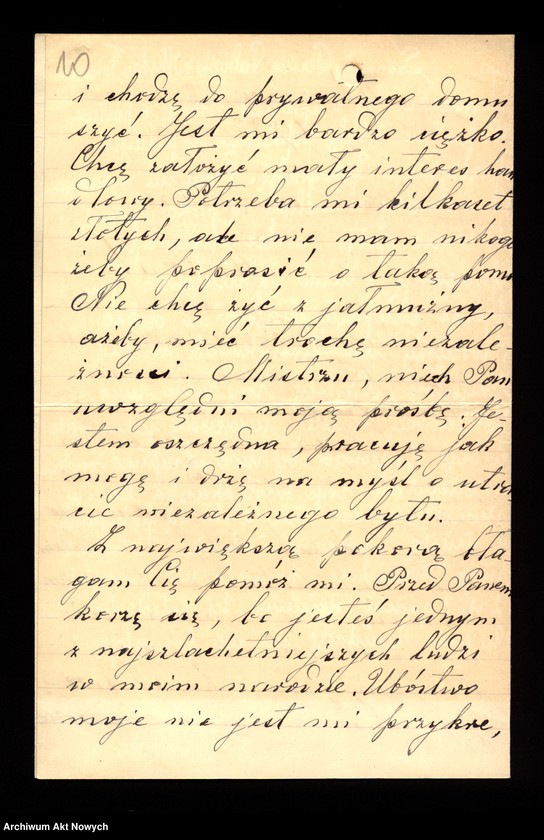 10
i chodzę do prywatnego domu
szyć. Jest mi bardzo ciężko.
Chcę założyć mały interes han
dlowy. Potrzeba mi kilkaset
złotych, ale nie mam nikogo
żeby poprosić o taką pomo
Nie chcę żyć z jałmużny,
ażeby, mieć trochę niezale-
żności. Mistrzu, niech Pan
uwzględni moją prośbę. Je-
stem oszczędna, pracuję jak
mogę i drżę na myśl o utra
cie niezależnego bytu.
Z największą pokorą bła-
gam Cię pomóż mi. Przed Panem
korzę się, bo jesteś jednym
z najszlachetniejszych ludzi
w moim narodzie. Ubóstwo
moje nie jest mi przykre,
Archiwum Akt Nowych